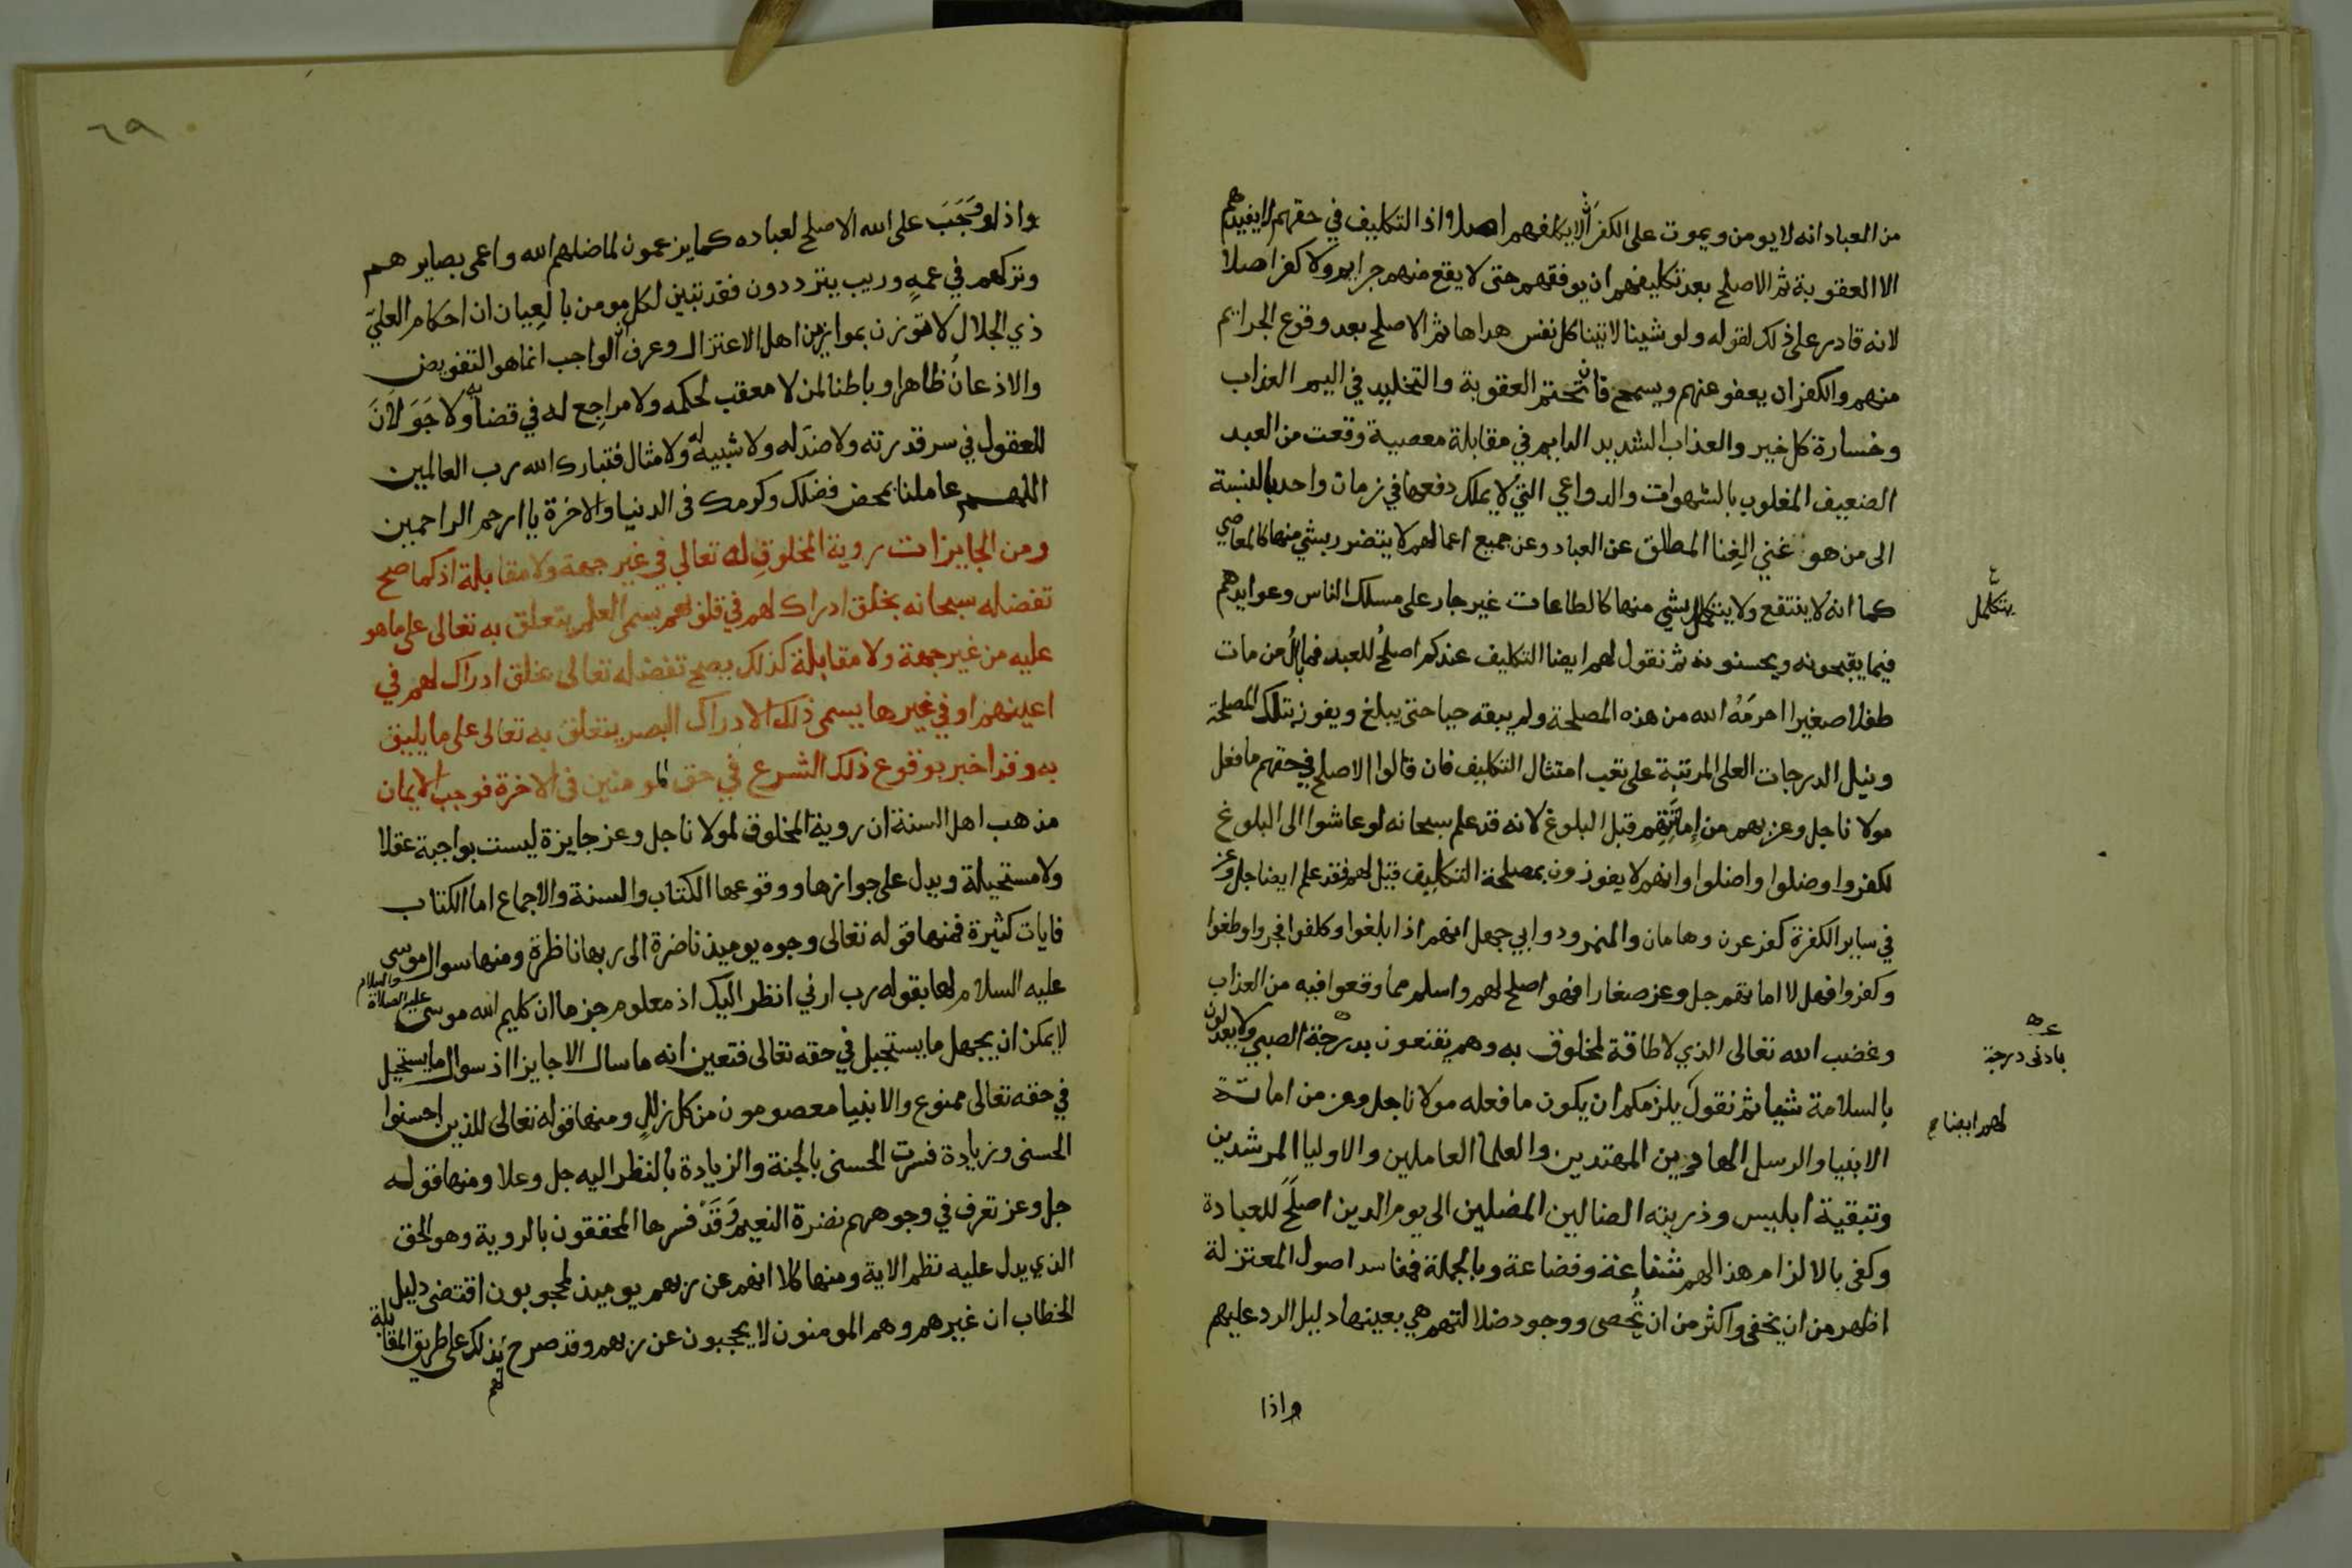 من العباد انه لا يومن ويموت على الكفر ان لا يكلفهم اصلا واذا التكليف في حقهم لا يفيدهم
الا العقوبة ثم الاصلح بعد تكليفهم ان يوفقهم حتى لا يقع منهم جرايم ولا كفر اصلا
لانه قادر على ذلك لقوله ولو شينا لاتينا كل نفس هداها ثم الاصلح بعد وقوع الجرايم
منهم والكفر ان يعفو عنهم ويسمح فان تحتم العقوبة والتخليد في اليم العذاب
وخسارة كل خير والعذاب الشديد الدايم في مقابلة معصية وقعت من العبد
الضعيف المغلوب بالشهوات والدواعي التي لا يملك دفعها في زمان واحد بالنسبة
الى من هو غني الغِنا المطلق عن العباد وعن جميع اعمالهم لا يتضرر بشي منها كالمعاصي
كما انه لا ينتفع ولا يتكمل بشي منها كالطاعات غير جار على مسلك الناس وعوايدهم
يتكمل
فيما يقبحونه ويحسنونه ثم نقول لهم ايضا التكليف عندكم اصلح للعبد فما بال من مات
طفلا صغيرا احرمَهُ الله من هذه المصلحة ولم يبقه حيا حتى يبلغ ويفوز بتلك المصلحة
ونيل الدرجات العلى المرتبة على تعب امتثال التكليف فان قالوا الاصلح في حقهم ما فعل
مولانا جل وعز بهم من اماتتهم قبل البلوغ لانه قد علم سبحانه لو عاشوا الى البلوغ
لكفروا وضلوا واضلوا وانهم لا يفوزون بمصلحة التكليف قيل لهم فقد علم ايضا جل وعز
في ساير الكفرة كفرعون وهامان والنمرود وابي جهل انهم اذا بلغوا وكلفوا فجروا وطغوا
وكفروا فهل لا اماتهم جل وعز صغارا فهو اصلح لهم واسلم مما وقعوا فيه من العذاب
وغضب الله تعالى الذي لا طاقة لمخلوق به وهم يقنعون بدرجة الصبي ولا يعدلون
بادنى درجة
بالسلامة شيا ثم نقول يلزمكم ان يكون ما فعله مولانا جل وعز من اماتة
لهم ايضا صح
الانبيا والرسل الهاديين المهتدين والعلما العاملين والاوليا المرشدين
وتبقية ابليس وذريته الضالين المضلين الى يوم الدين اصلَحَ للعبادة
وكفى بالالزام هذا لهم شناعة وفضاعة وبالجملة ففاسد اصول المعتزلة
اظهر من ان يخفى واكثر من ان تُحصى ووجود ضلالتهم هي بعينها دليل الرد عليهم
واذا
٦٩
واذ لو وَجَبَ على الله الاصلح لعباده كما يزعمون لما ضلهم الله واعمى بصايرهم
وتركهم في عمهٍ وريب يترددون فقد تبين لكل مومن بالعِيان ان احكام العليّ
ذي الجلال لا توزن بموازين اهل الاعتزال وعرف ان الواجب انما هو التفويض
والاذعان ظاهرا وباطنا لمن لا معقب لحكمه ولا مراجع له في قضايه ولا جَوَلَانَ
للعقول في سر قدرته ولا ضد له ولا شبيه له ولا مثال فتبارك الله رب العالمين
اللهم عاملنا بمحض فضلك وكرمك في الدنيا والاخرة يا ارحم الراحمين
ومن الجايزات روية المخلوقِ له تعالي في غير جهة ولا مقابلة اذ كما صح
تفضله سبحانه بخلق ادراك لهم في قلوبهم يسمى العلم يتعلق به تعالى على ما هو
عليه من غير جهة ولا مقابلة كذلك يصح تفضله تعالى بخلق ادراك لهم في
اعينهم او في غيرها يسمى ذلك الادراك البصر يتعلق به تعالى على ما يليق
به وقد اخبر بوقوع ذلك الشرع في حق المومنين في الاخرة فوجب الايمان
مذهب اهل السنة ان روية المخلوق لمولانا جل وعز جايزة ليست بواجبة عقلا
ولا مستحيلة ويدل على جوازها ووقوعها الكتاب والسنة والاجماع اما الكتاب
فايات كثيرة فمنها قوله تعالى وجوه يوميذ ناضرة الى ربها ناظرة ومنها سوال موسى
عليه السلام لها بقوله رب ارني انظر اليك اذ معلوم جزما ان كليم الله موسى عليه الصلاة والسلام
لا يمكن ان يجهل ما يستحيل في حقه تعالى فتعين انه ما سال الا جايزا اذ سوال ما يستحيل
في حقه تعالى ممنوع والانبيا معصومون من كل زللٍ ومنها قوله تعالى للذين احسنوا
الحسنى وزيادة فسرت الحسنى بالجنة والزيادة بالنظر اليه جل وعلا ومنها قوله
جل وعز تعرف في وجوههم نضرة النعيم وَقَدْ فسرها المحققون بالروية وهو الحق
الذي يدل عليه نظم الاية ومنها كلا انهم عن ربهم يوميذ لمحجوبون اقتضى دليل
الخطاب ان غيرهم وهم المومنون لا يحجبون عن ربهم وقد صرح بذلك على طريق المقابلة
لهم